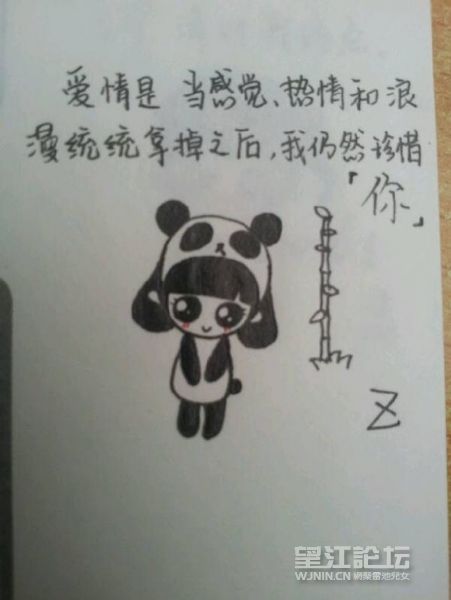 爱情是 当感觉、热情和浪
漫统统拿掉之后,我仍然珍惜
「你」
Z
望江論坛
WJNIN.CN 網聚雷池兒女